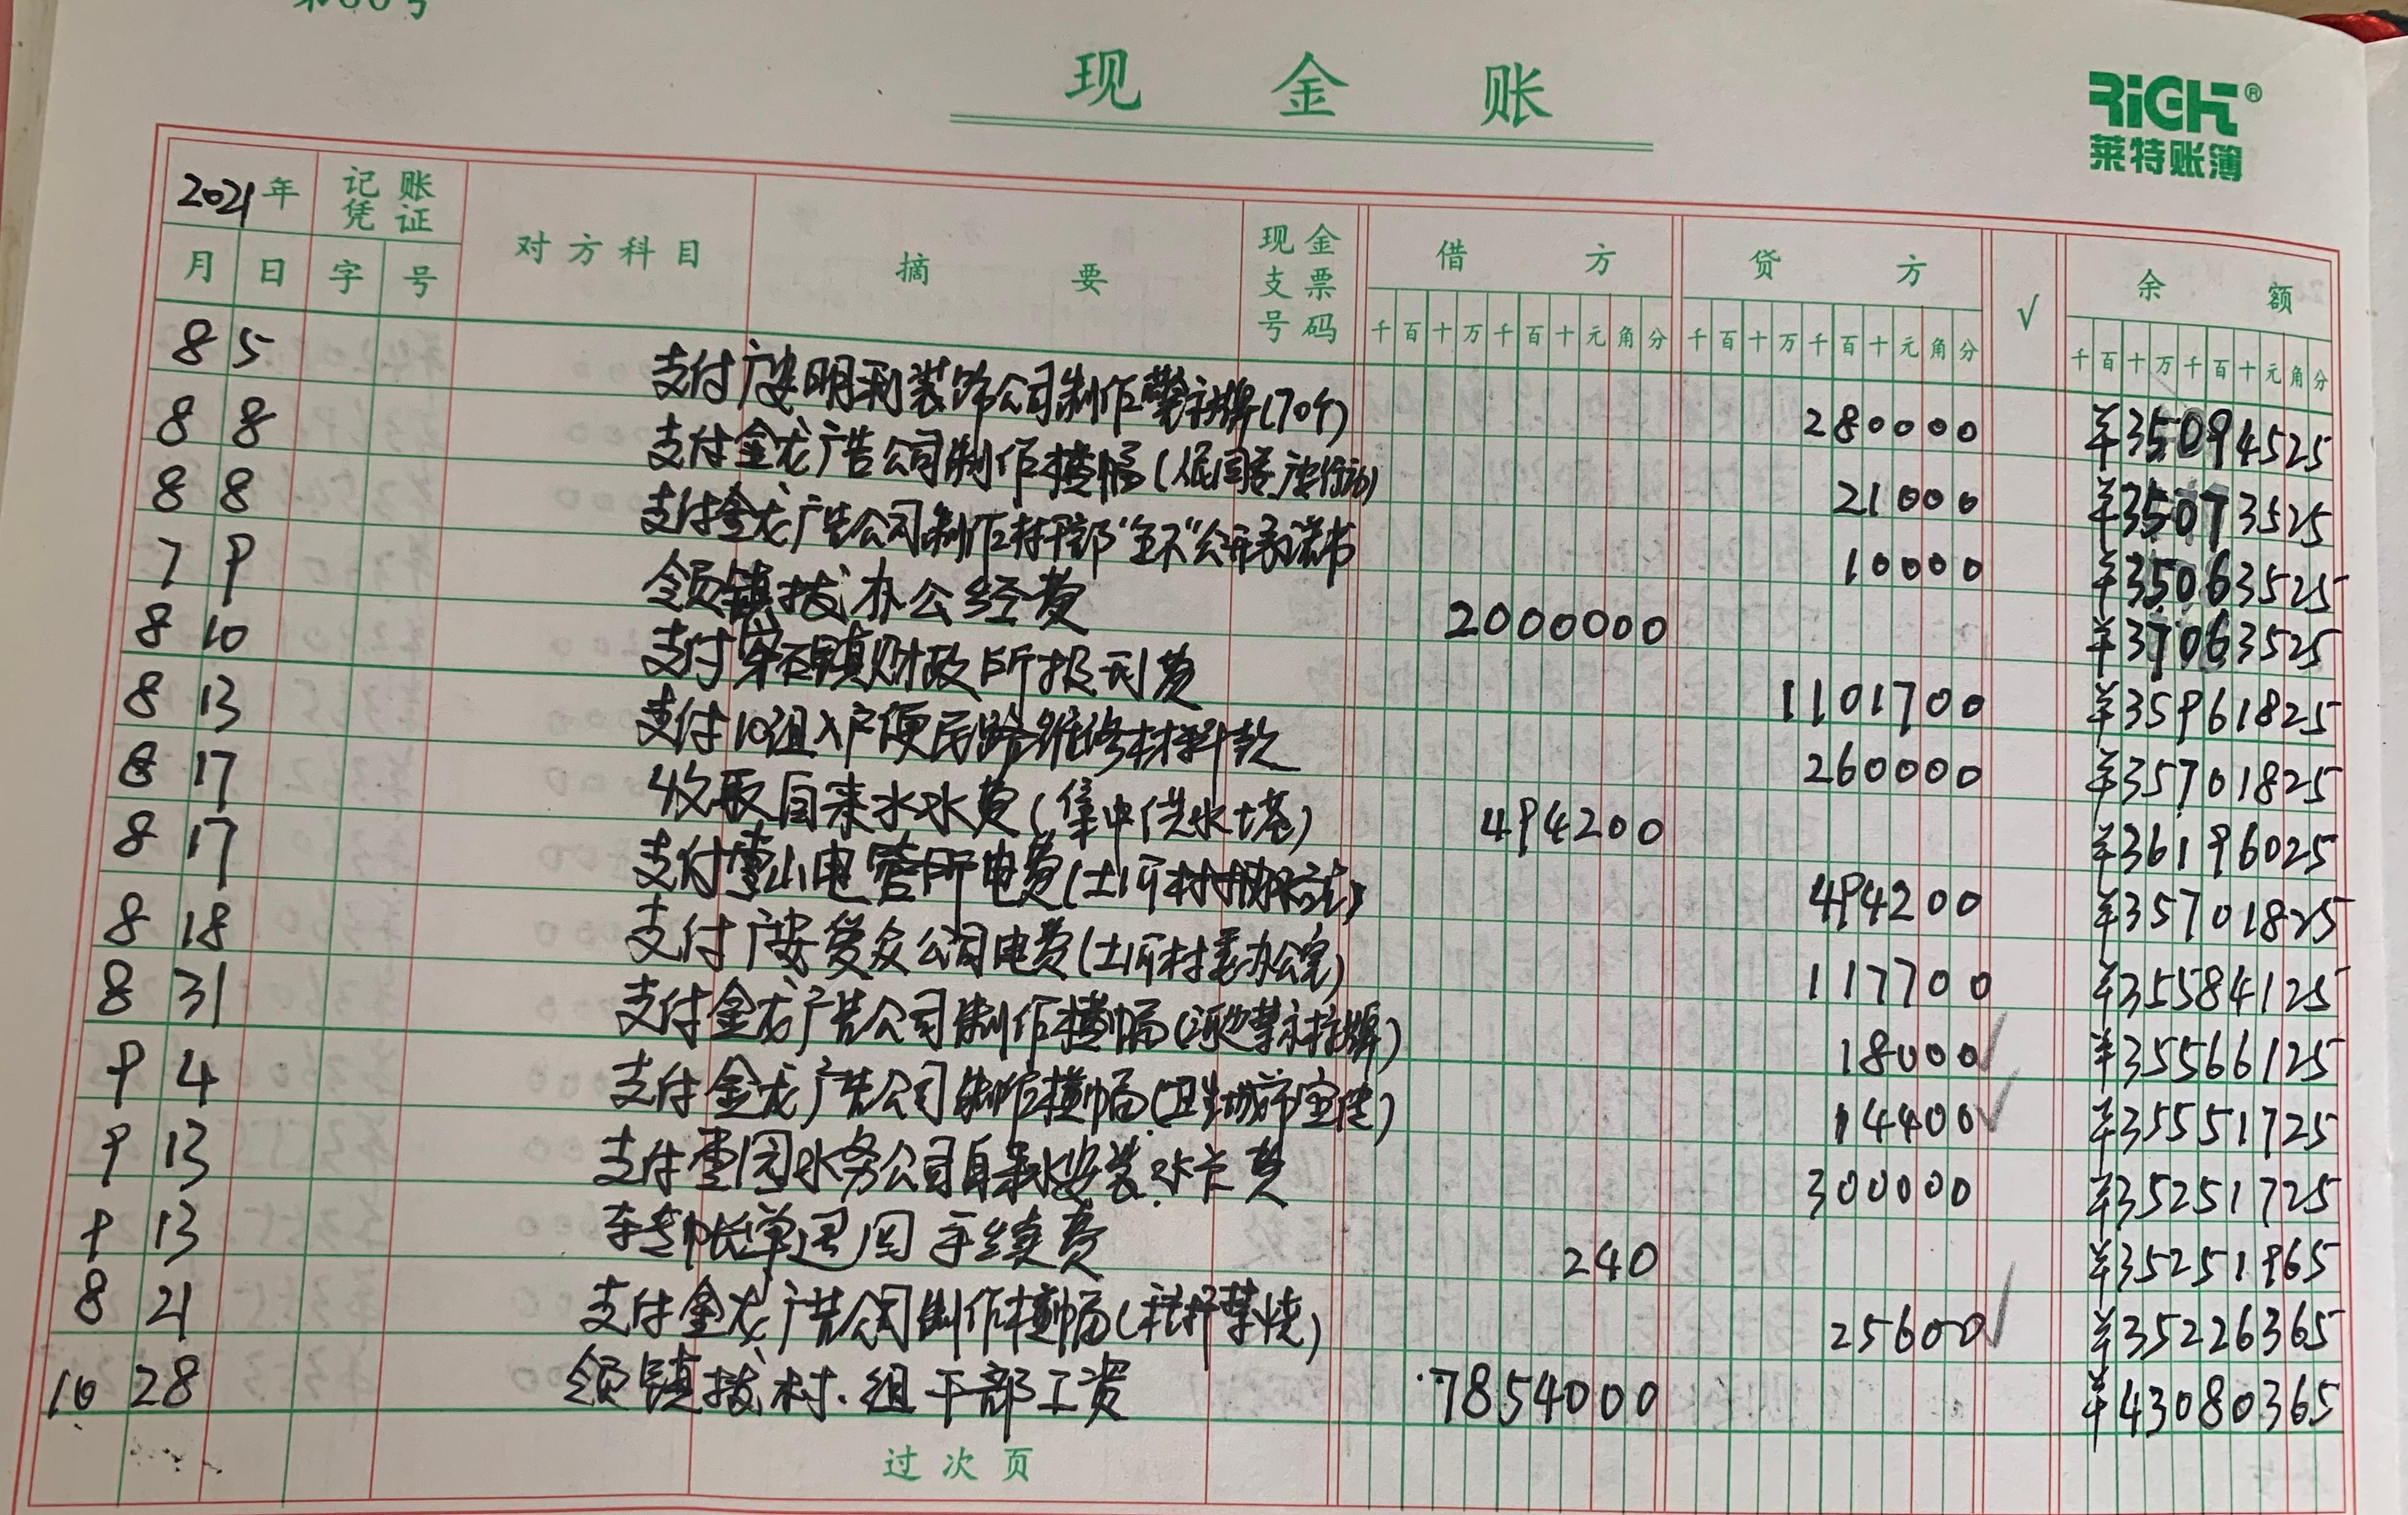 现金账
RiGHT®
莱特账簿
2021年 记账凭证 对方科目 摘要 现金支票号码 借方 贷方 √ 余额
月 日 字 号 千百十万千百十元角分 千百十万千百十元角分 千百十万千百十元角分
8 5 支付广安明利装饰公司制作禁牌(70个) 280000 ¥35094525
8 8 支付金龙广告公司制作横幅 21000 ¥35073525
8 8 支付金龙广告公司制作村干部"全不"公开承诺书 10000 ¥35063525
7 9 领镇拨办公经费 2000000 ¥37063525
8 10 支付镇财政所报刊费 1101700 ¥35961825
8 13 支付10组入户便民路维修材料款 260000 ¥35701825
8 17 收取自来水水费(集中供水塔) 494200 ¥36196025
8 17 支付电管所电费 494200 ¥35701825
8 18 支付广安爱众公司电费(土河村委办公室) 117700 ¥35584125
8 31 支付金龙广告公司制作横幅 18000 √ ¥35566125
9 4 支付金龙广告公司制作横幅(卫生城市宣传) 14400 √ ¥35551725
9 13 支付枣园水务公司自来水安装水卡费 300000 ¥35251725
9 13 帐单退回手续费 240 ¥35251965
8 21 支付金龙广告公司制作横幅(秸秆禁烧) 25600 √ ¥35226365
10 28 领镇拨村.组干部工资 7854000 ¥43080365
过次页